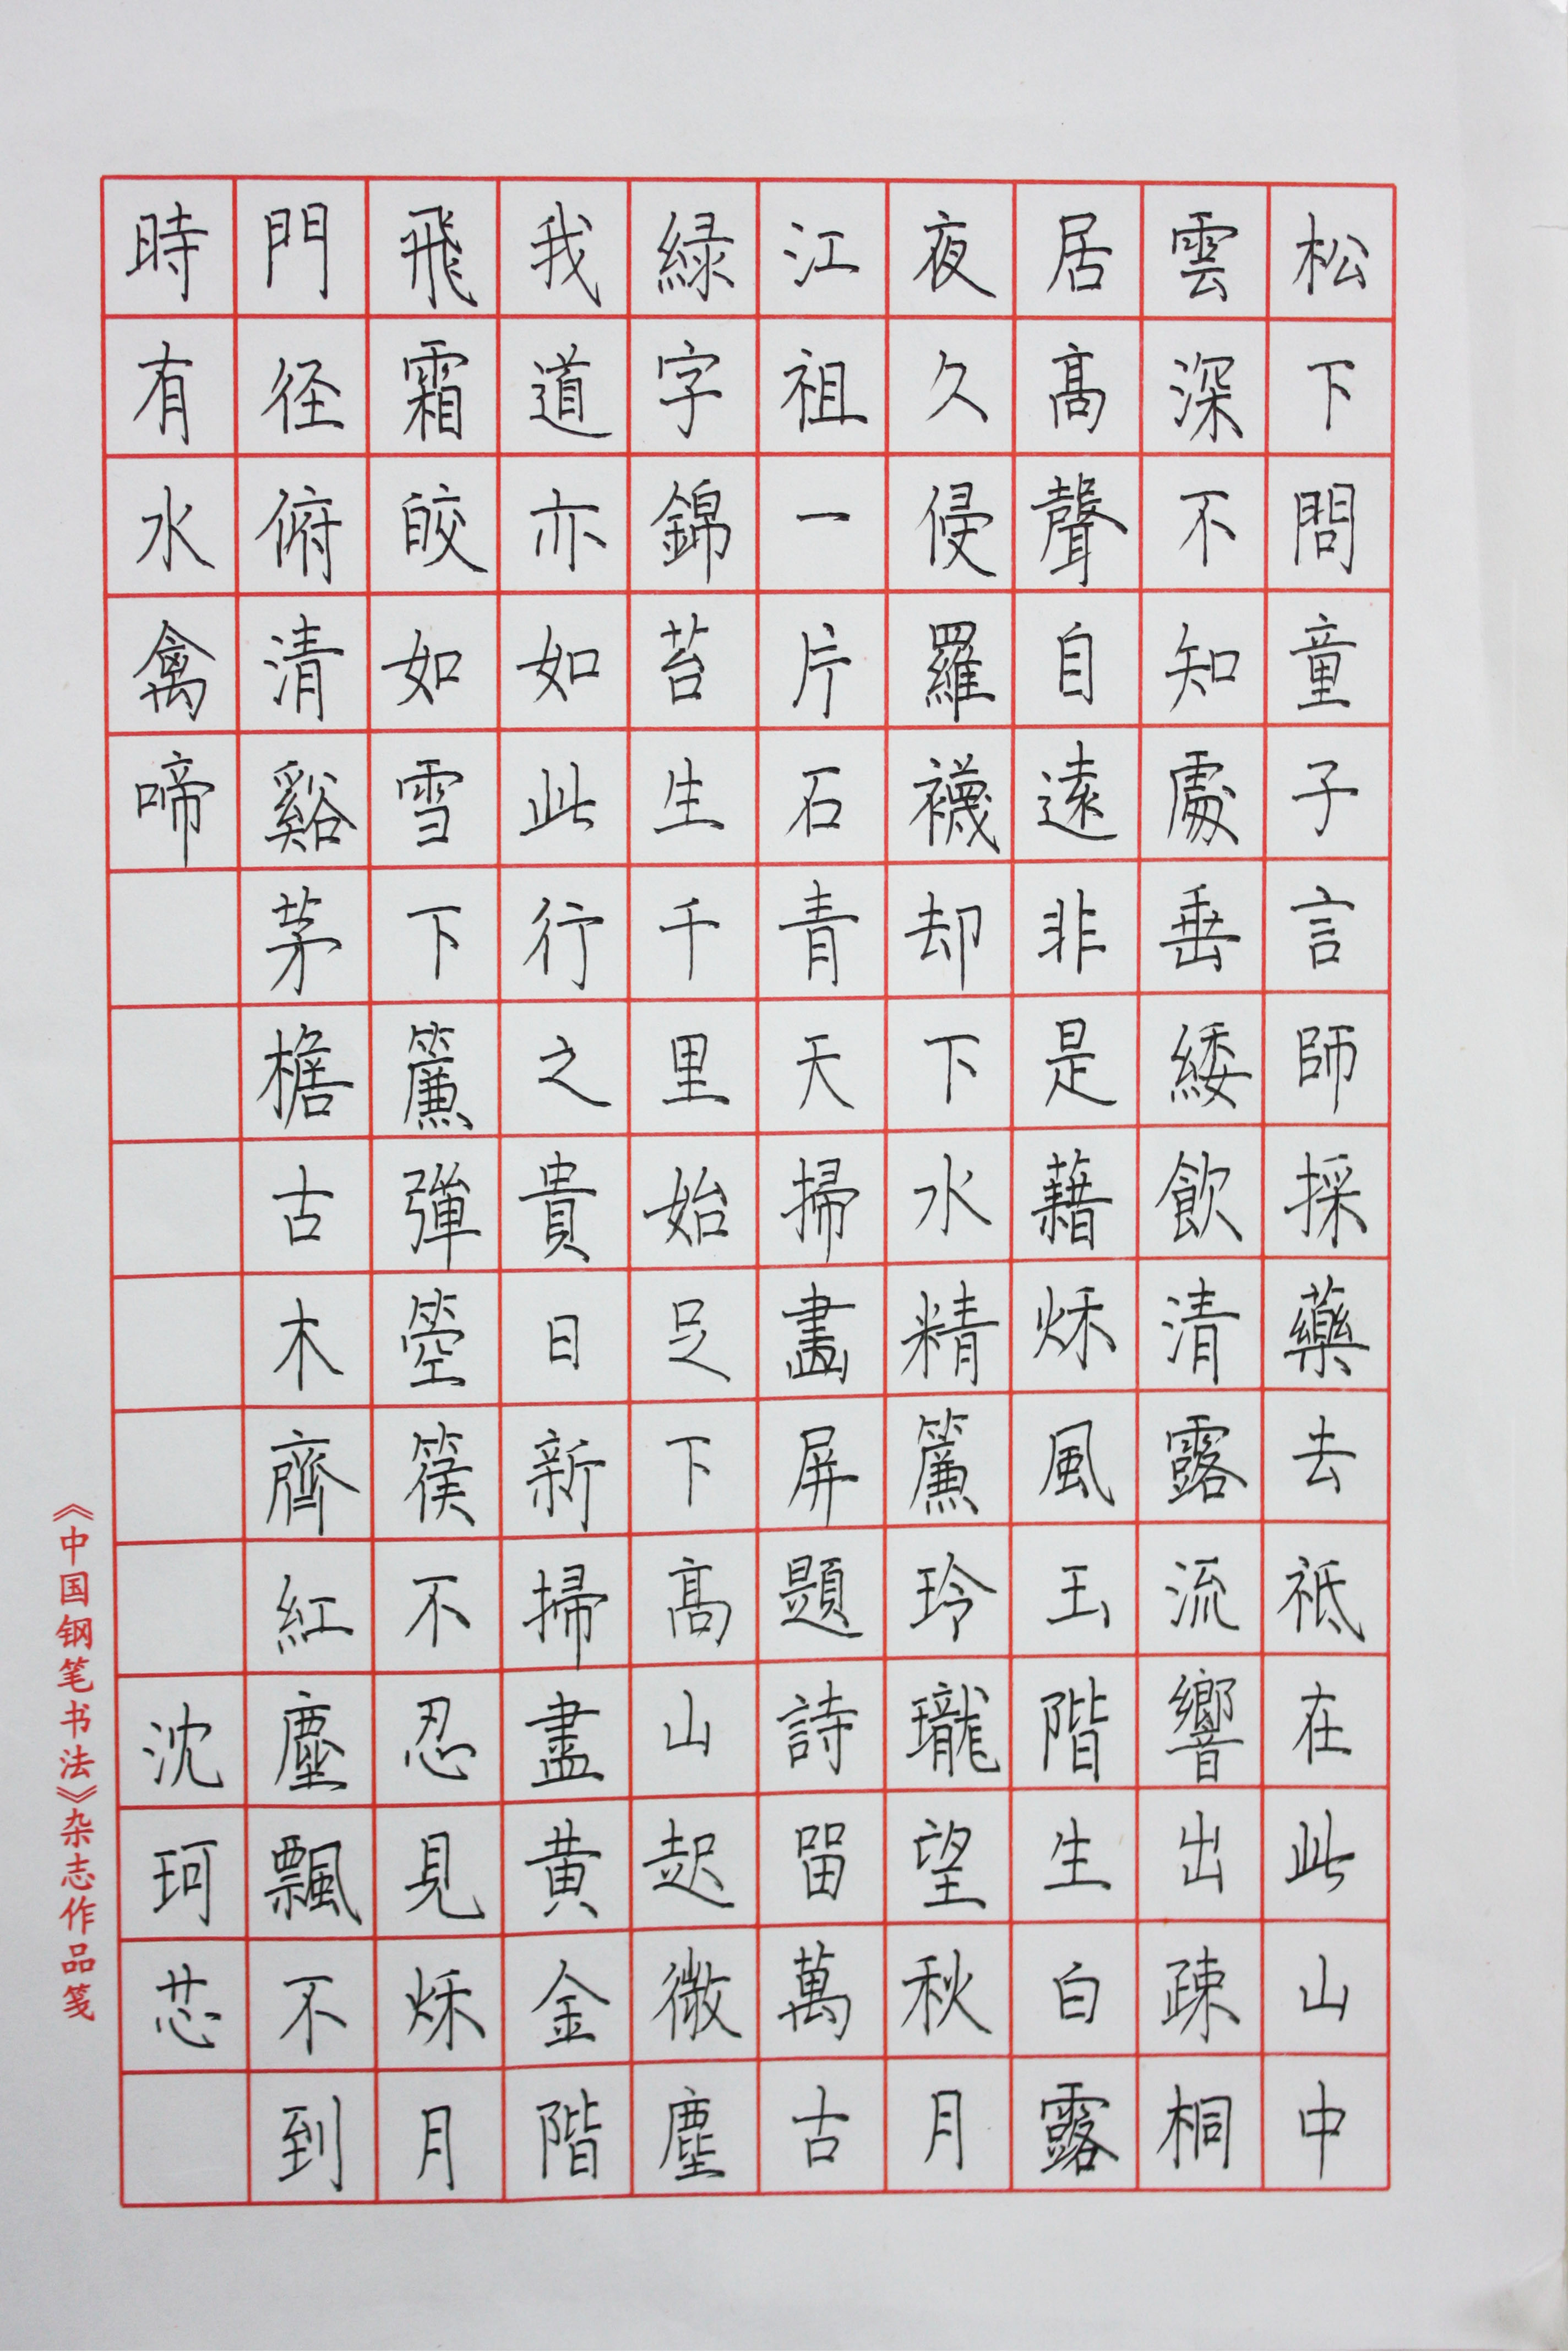 松下問童子言師採藥去祗在此山中
雲深不知處垂緌飲清露流響出疎桐
居高聲自遠非是藉秌風玉階生白露
夜久侵羅襪却下水精簾玲瓏望秋月
江祖一片石青天掃畫屏題詩留萬古
綠字錦苔生千里始足下高山起微塵
我道亦如此行之貴日新掃盡黄金階
飛霜皎如雪下簾彈箜篌不忍見秌月
門径俯清谿茅檐古木齊紅塵飄不到
時有水禽啼
沈珂芯
《中国钢笔书法》杂志作品笺